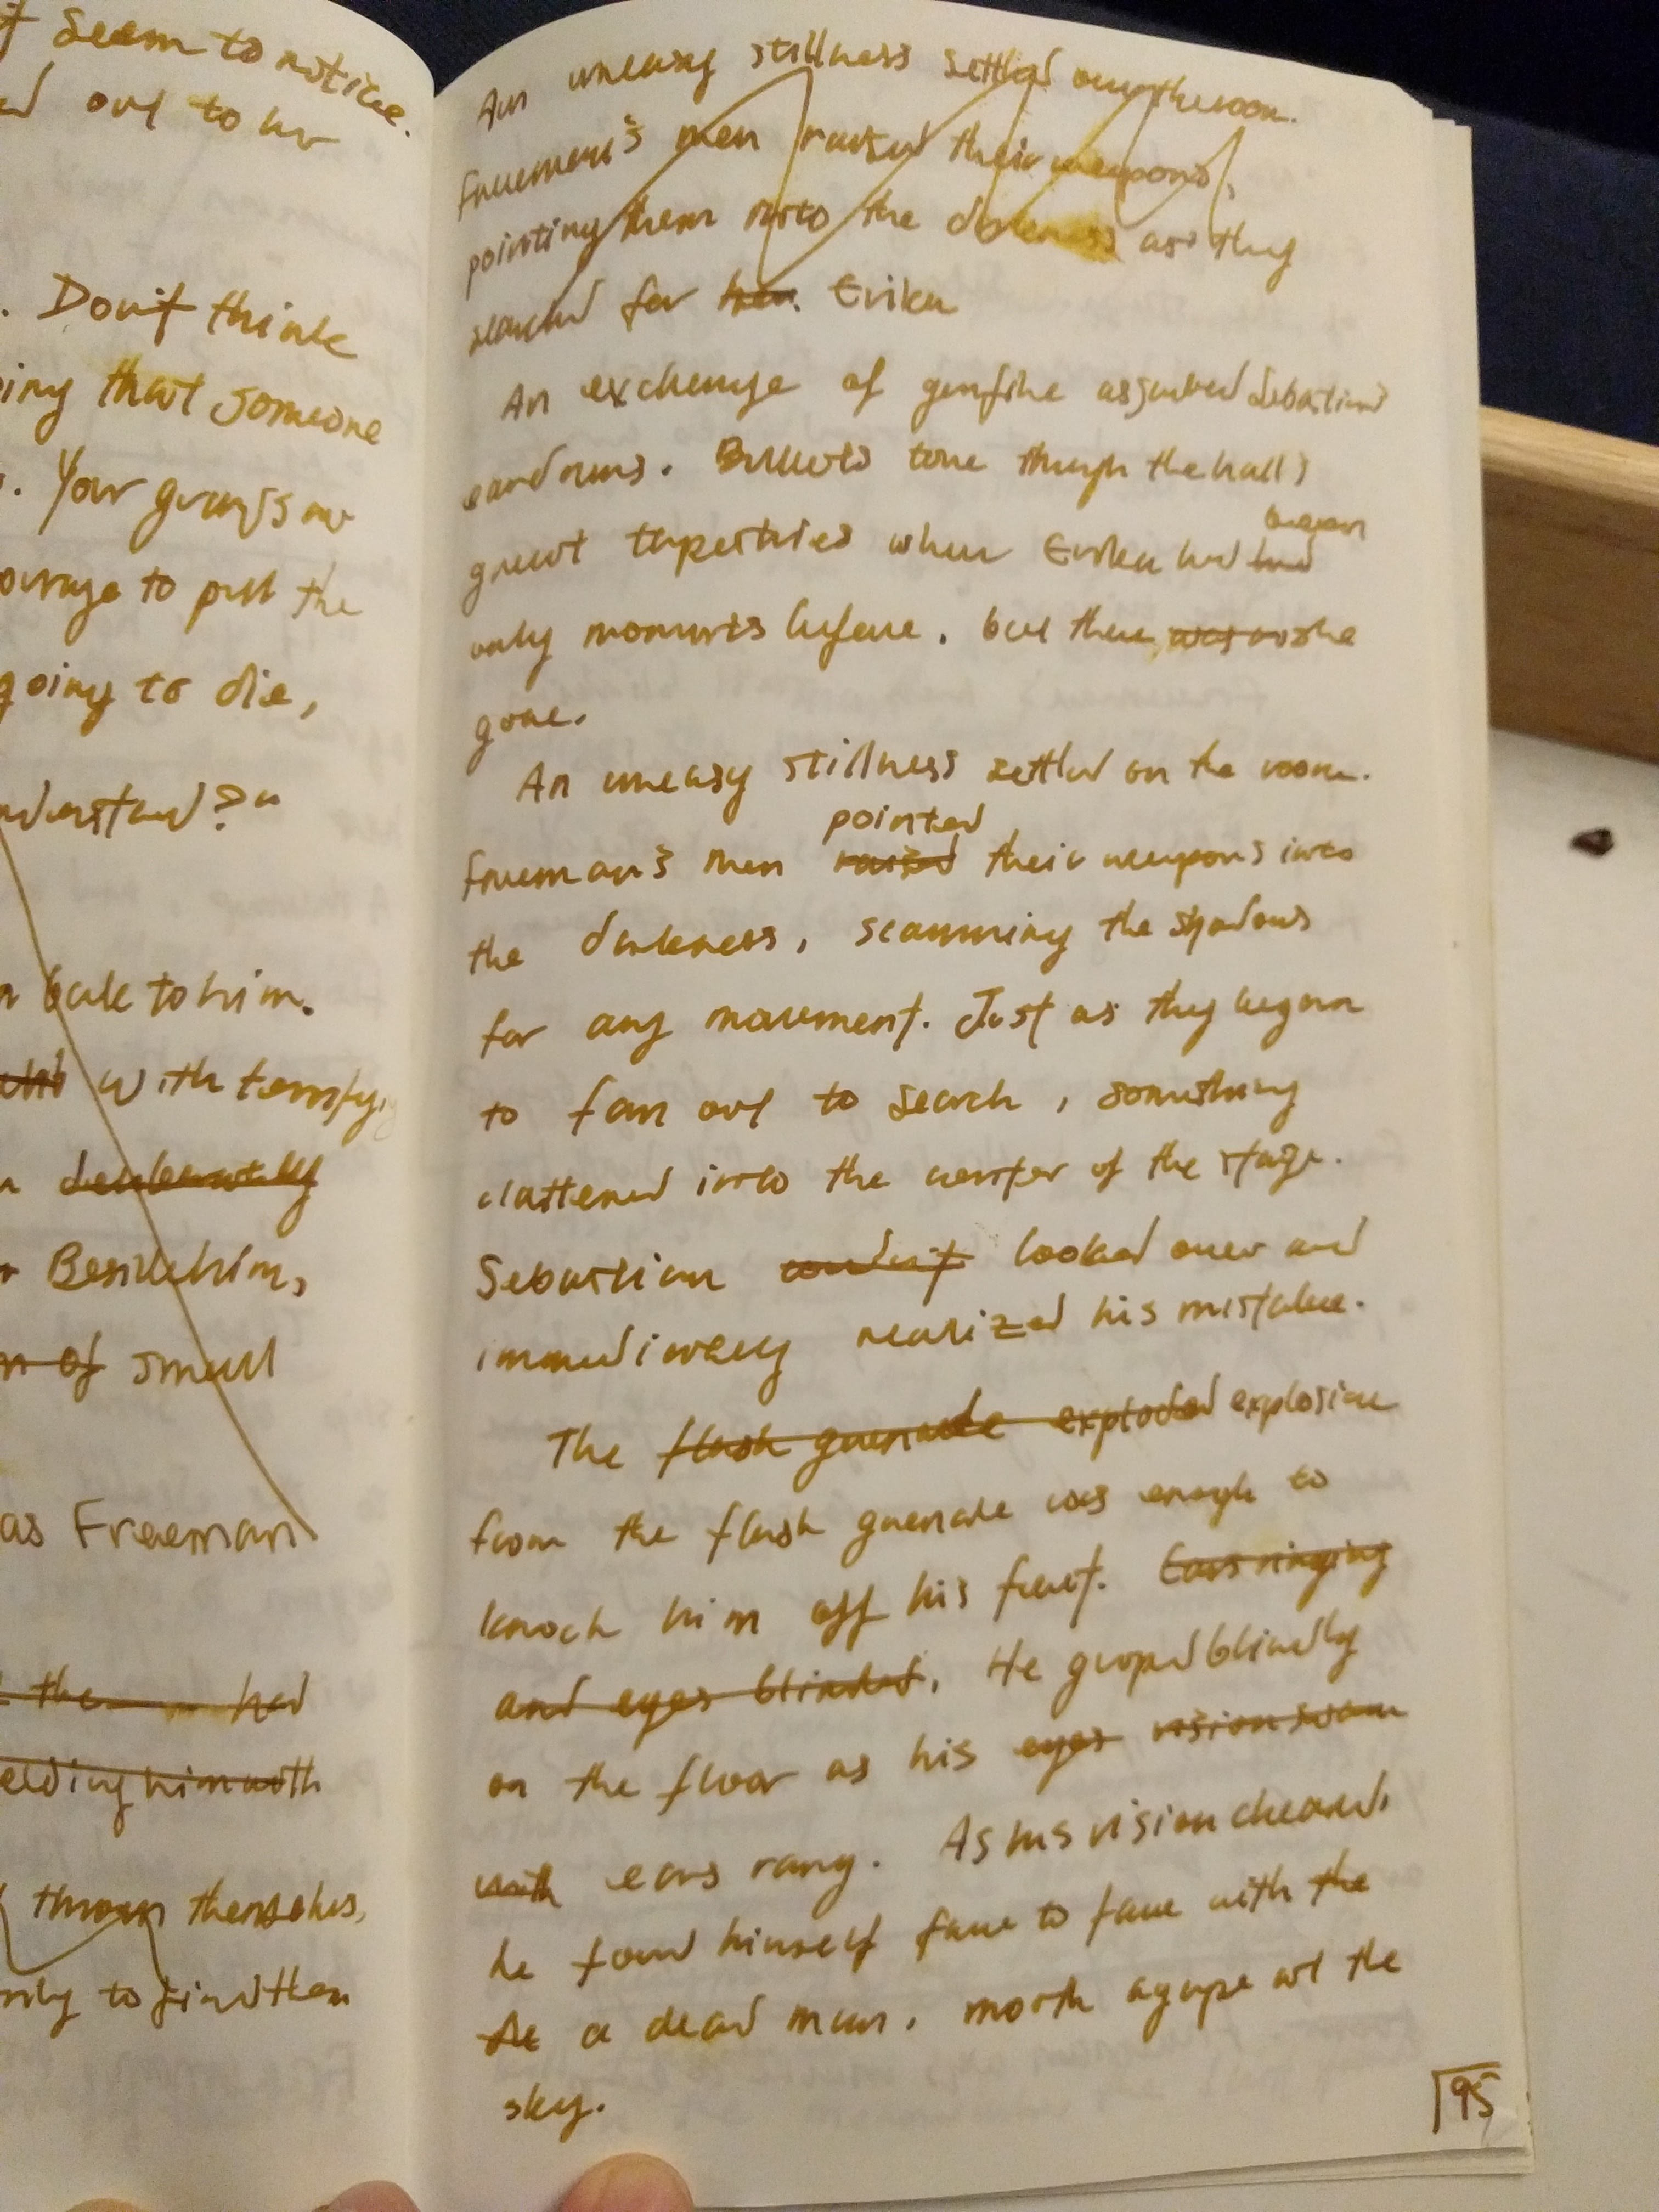 seem to notice.
out to
. Don't think
ing that someone
. Your
ourage to pull the
going to die,
nderstand?"
back to him.
with terrifying
Beside him,
of small
as Freeman
the had
elding him with
thrown themselves,
only to find them
An uneasy stillness settled over the room.
Freeman's men raised their weapons,
pointing them into the darkness as they
searched for her. Erika
An exchange of gunfire assaulted Sebastian's
eardrums. Bullets tore through the hall's
great tapestries where Erika had had
been
only moments before, but then was she
gone.
An uneasy stillness settled on the room.
pointed
Freeman's men raised their weapons into
the darkness, scanning the shadows
for any movement. Just as they began
to fan out to search, something
clattered into the center of the stage.
Sebastian couldn't looked over and
immediately realized his mistake.
The flash grenade exploded explosion
from the flash grenade was enough to
knock him off his feet. Ears ringing
and eyes blinded, He groped blindly
on the floor as his eyes vision swam
with ears rang. As his vision cleared,
he found himself face to face with the
the a dead man, mouth agape at the
sky.
95